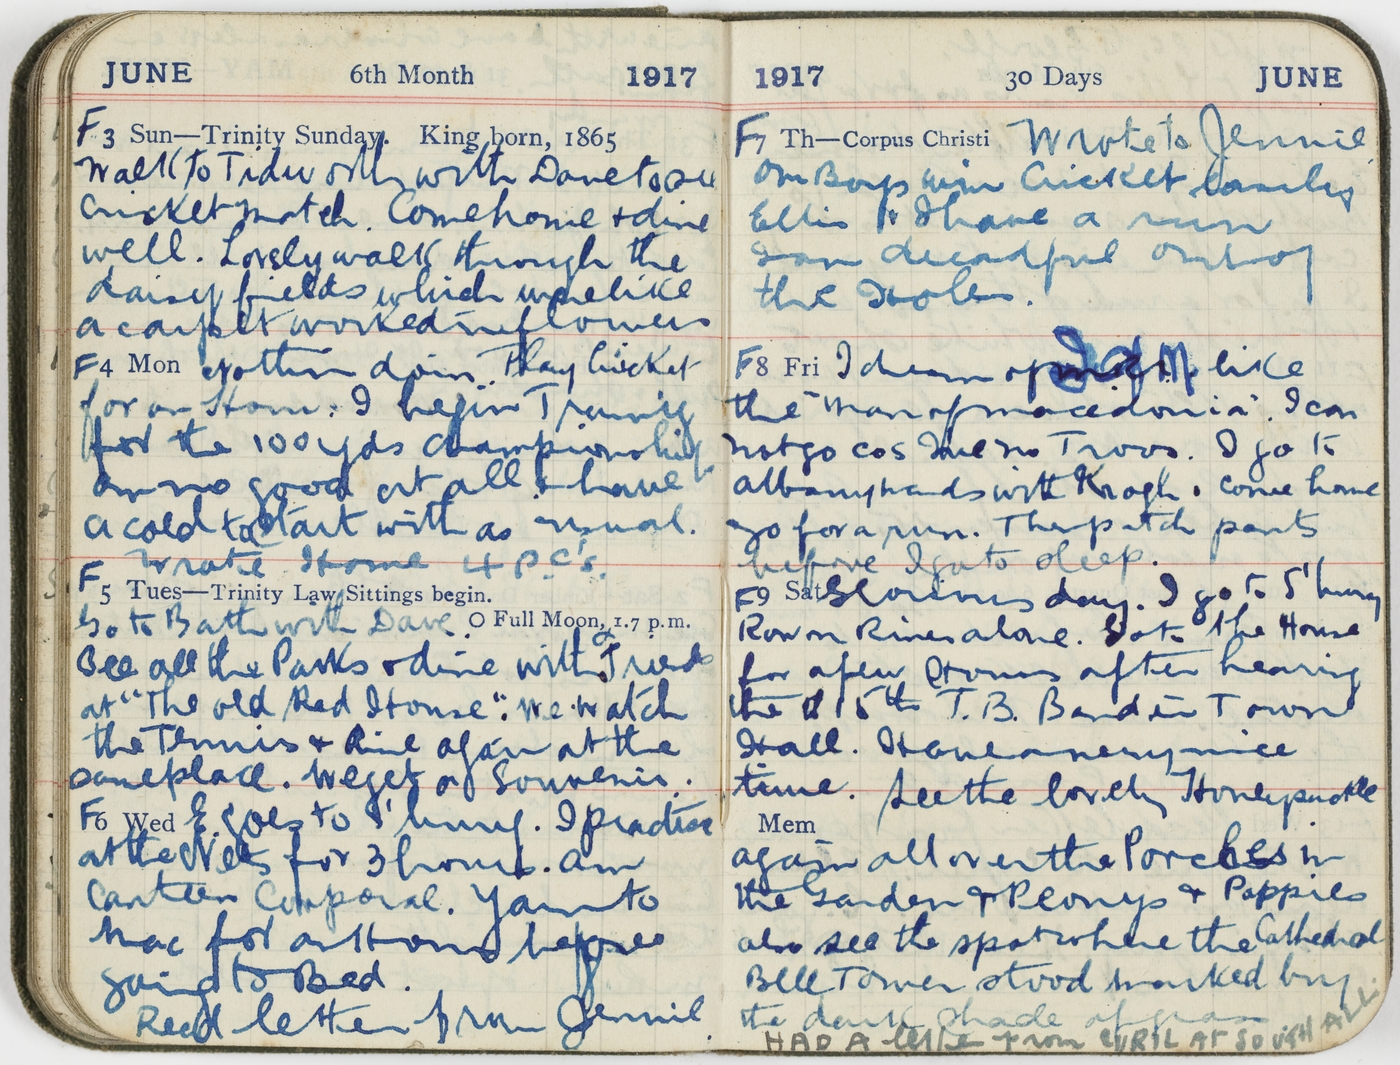 JUNE 6th Month 1917
F 3 Sun—Trinity Sunday. King born, 1865
Walk to Tidworth with Dave to see
Cricket match. Come home & dine
well. Lovely walk through the
daisy fields which were like
a carpet worked in flowers
F 4 Mon Play Cricket
for an Hour. I begin Traing
for the 100 yds Championship
am no good at all & have
a cold to start with as usual.
Wrote Home 4 P.C's.
F 5 Tues—Trinity Law Sittings begin.
Go to Bath with Dave. O Full Moon, 1.7 p.m.
See all the Parks & dine with a Friend
at "The old Red House". We Watch
the Tennis & Dine again at the
same place. We get a Souvenir.
F 6 Wed E. goes to S'bury. I practise
at the Nets for 3 hours. am
Canteen Corporal. Yarn to
Mac for an Hour before
going to Bed.
Recd letter from Jennie.
1917 30 Days JUNE
F 7 Th—Corpus Christi Wrote to Jennie
Our Boys win Cricket easily
Ellis & I have a run
I am dreadful out of
the Holes.
F 8 Fri I dream of like
the "man of macedonia". I can
not go cos Ive no Trovs. I go to
albany wards with Krogh. come home
go for a run. Then patch pants
before I go to sleep.
F 9 Sat Glorious day. I go to S'bury
Row on River alone. S at the House
for a few Hours after hearing
the 15th T.B. Band in Town
Hall. Have a very nice
time. See the lovely Honeysuckle
Mem
again all over the Porches in
the Garden & Peonys & Poppies
also see the spot where the Cathedral
Bell Tower stood marked by
the dark shade of grass
HAD A letter from CYRIL AT SOUTHALL